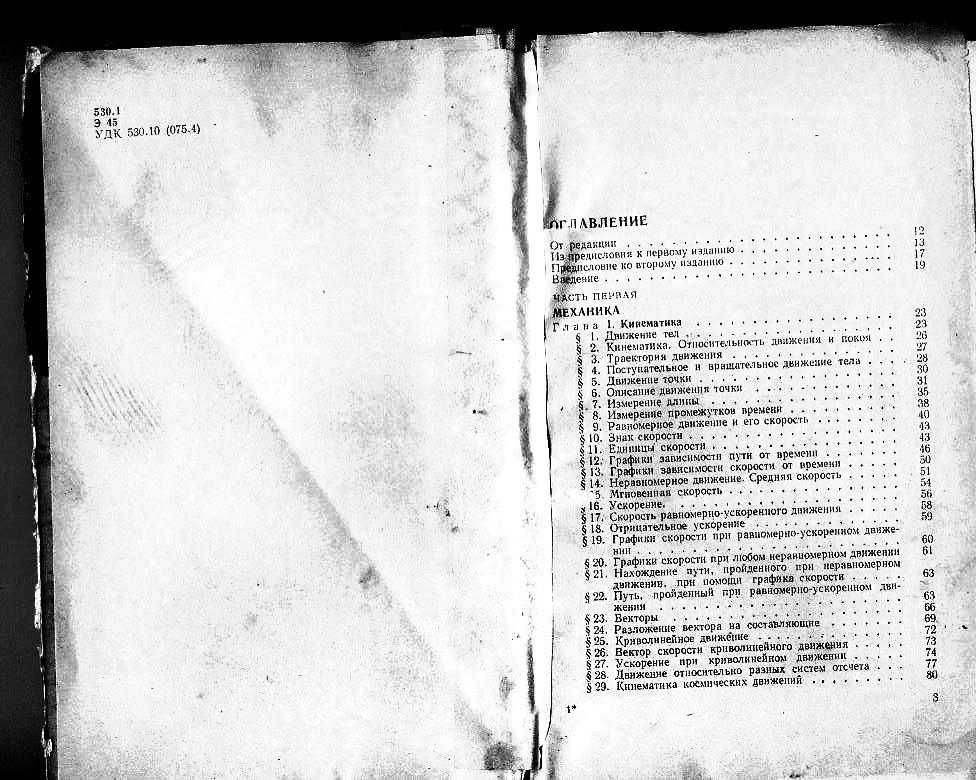 530.1
Э 45
УДК 530.10 (075.4)
ОГЛАВЛЕНИЕ
От редакции . . . . . . . . . . . . . . . . . . . . 12
Из предисловия к первому изданию . . . . . . . . . . . . 13
Предисловие ко второму изданию . . . . . . . . . . . . 17
Введение . . . . . . . . . . . . . . . . . . . . 19
ЧАСТЬ ПЕРВАЯ
МЕХАНИКА
Глава 1. Кинематика . . . . . . . . . . . . . . . 23
§ 1. Движение тел . . . . . . . . . . . . . . . 23
§ 2. Кинематика. Относительность движения и покоя . . 26
§ 3. Траектория движения . . . . . . . . . . . . 27
§ 4. Поступательное и вращательное движение тела . . . . 28
§ 5. Движение точки . . . . . . . . . . . . . . 30
§ 6. Описание движения точки . . . . . . . . . . . 31
§ 7. Измерение длины . . . . . . . . . . . . . 35
§ 8. Измерение промежутков времени . . . . . . . . 38
§ 9. Равномерное движение и его скорость . . . . . . . 40
§ 10. Знак скорости . . . . . . . . . . . . . . 43
§ 11. Единицы скорости . . . . . . . . . . . . . 43
§ 12. Графики зависимости пути от времени . . . . . . 46
§ 13. Графики зависимости скорости от времени . . . . . 50
§ 14. Неравномерное движение. Средняя скорость . . . . . 51
5. Мгновенная скорость . . . . . . . . . . . . 54
16. Ускорение. . . . . . . . . . . . . . . . 56
§ 17. Скорость равномерно-ускоренного движения . . . . . 58
§ 18. Отрицательное ускорение . . . . . . . . . . . 59
§ 19. Графики скорости при равномерно-ускоренном движе-
нии . . . . . . . . . . . . . . . . . . . 60
§ 20. Графики скорости при любом неравномерном движении 61
§ 21. Нахождение пути, пройденного при неравномерном
движении, при помощи графика скорости . . . . . 63
§ 22. Путь, пройденный при равномерно-ускоренном дви-
жении . . . . . . . . . . . . . . . . . . 63
§ 23. Векторы . . . . . . . . . . . . . . . . 66
§ 24. Разложение вектора на составляющие . . . . . . 69
§ 25. Криволинейное движение . . . . . . . . . . . 72
§ 26. Вектор скорости криволинейного движения . . . . . 73
§ 27. Ускорение при криволинейном движении . . . . . 74
§ 28. Движение относительно разных систем отсчета . . . 77
§ 29. Кинематика космических движений . . . . . . . . 80
1*
3